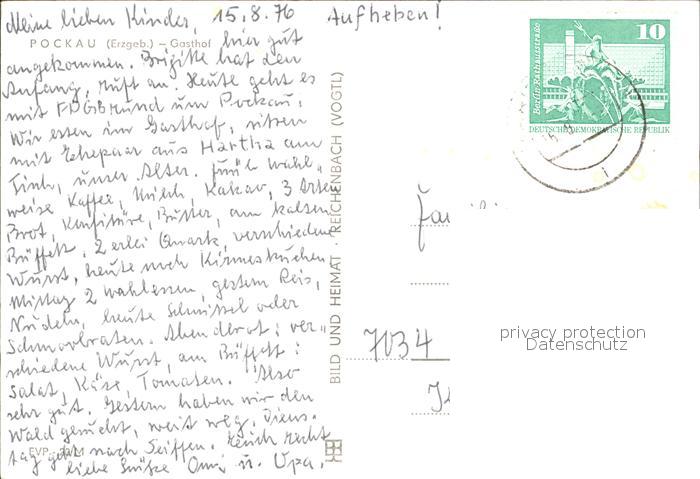 Meine lieben Kinder, 15.8.76 Aufheben!
POCKAU (Erzgeb.) – Gasthof
hier gut
angekommen. Brigitte hat den
Anfang, ruft an. Heute geht es
mit FDGB rund um Pockau.
Wir essen im Gasthof, sitzen
mit Ehepaar aus Hartha am
Tisch, unser Alter. Früh wahl-
weise Kaffee, Milch, Kakao, 3 Arten
Brot, Konfitüre, Butter, am kalten
Büffett. 2 erlei Quark, verschiedene
Wurst, heute noch Kirmeskuchen
Mittag 2 wahlessen, gestern Reis,
Nudeln, heute Schnitzel oder
Schmorbraten. Abendbrot: ver-
schiedene Wurst, am Büffett:
Salat, Käse, Tomaten. Also
sehr gut. Gestern haben wir den
Wald gesucht, weit weg. Diens-
tag geht nach Seiffen. Euch recht
liebe Grüße Omi u. Opa.
BILD UND HEIMAT · REICHENBACH (VOGTL)
10
Berlin, Rathausstraße
DEUTSCHE DEMOKRATISCHE REPUBLIK
7034
privacy protection
Datenschutz